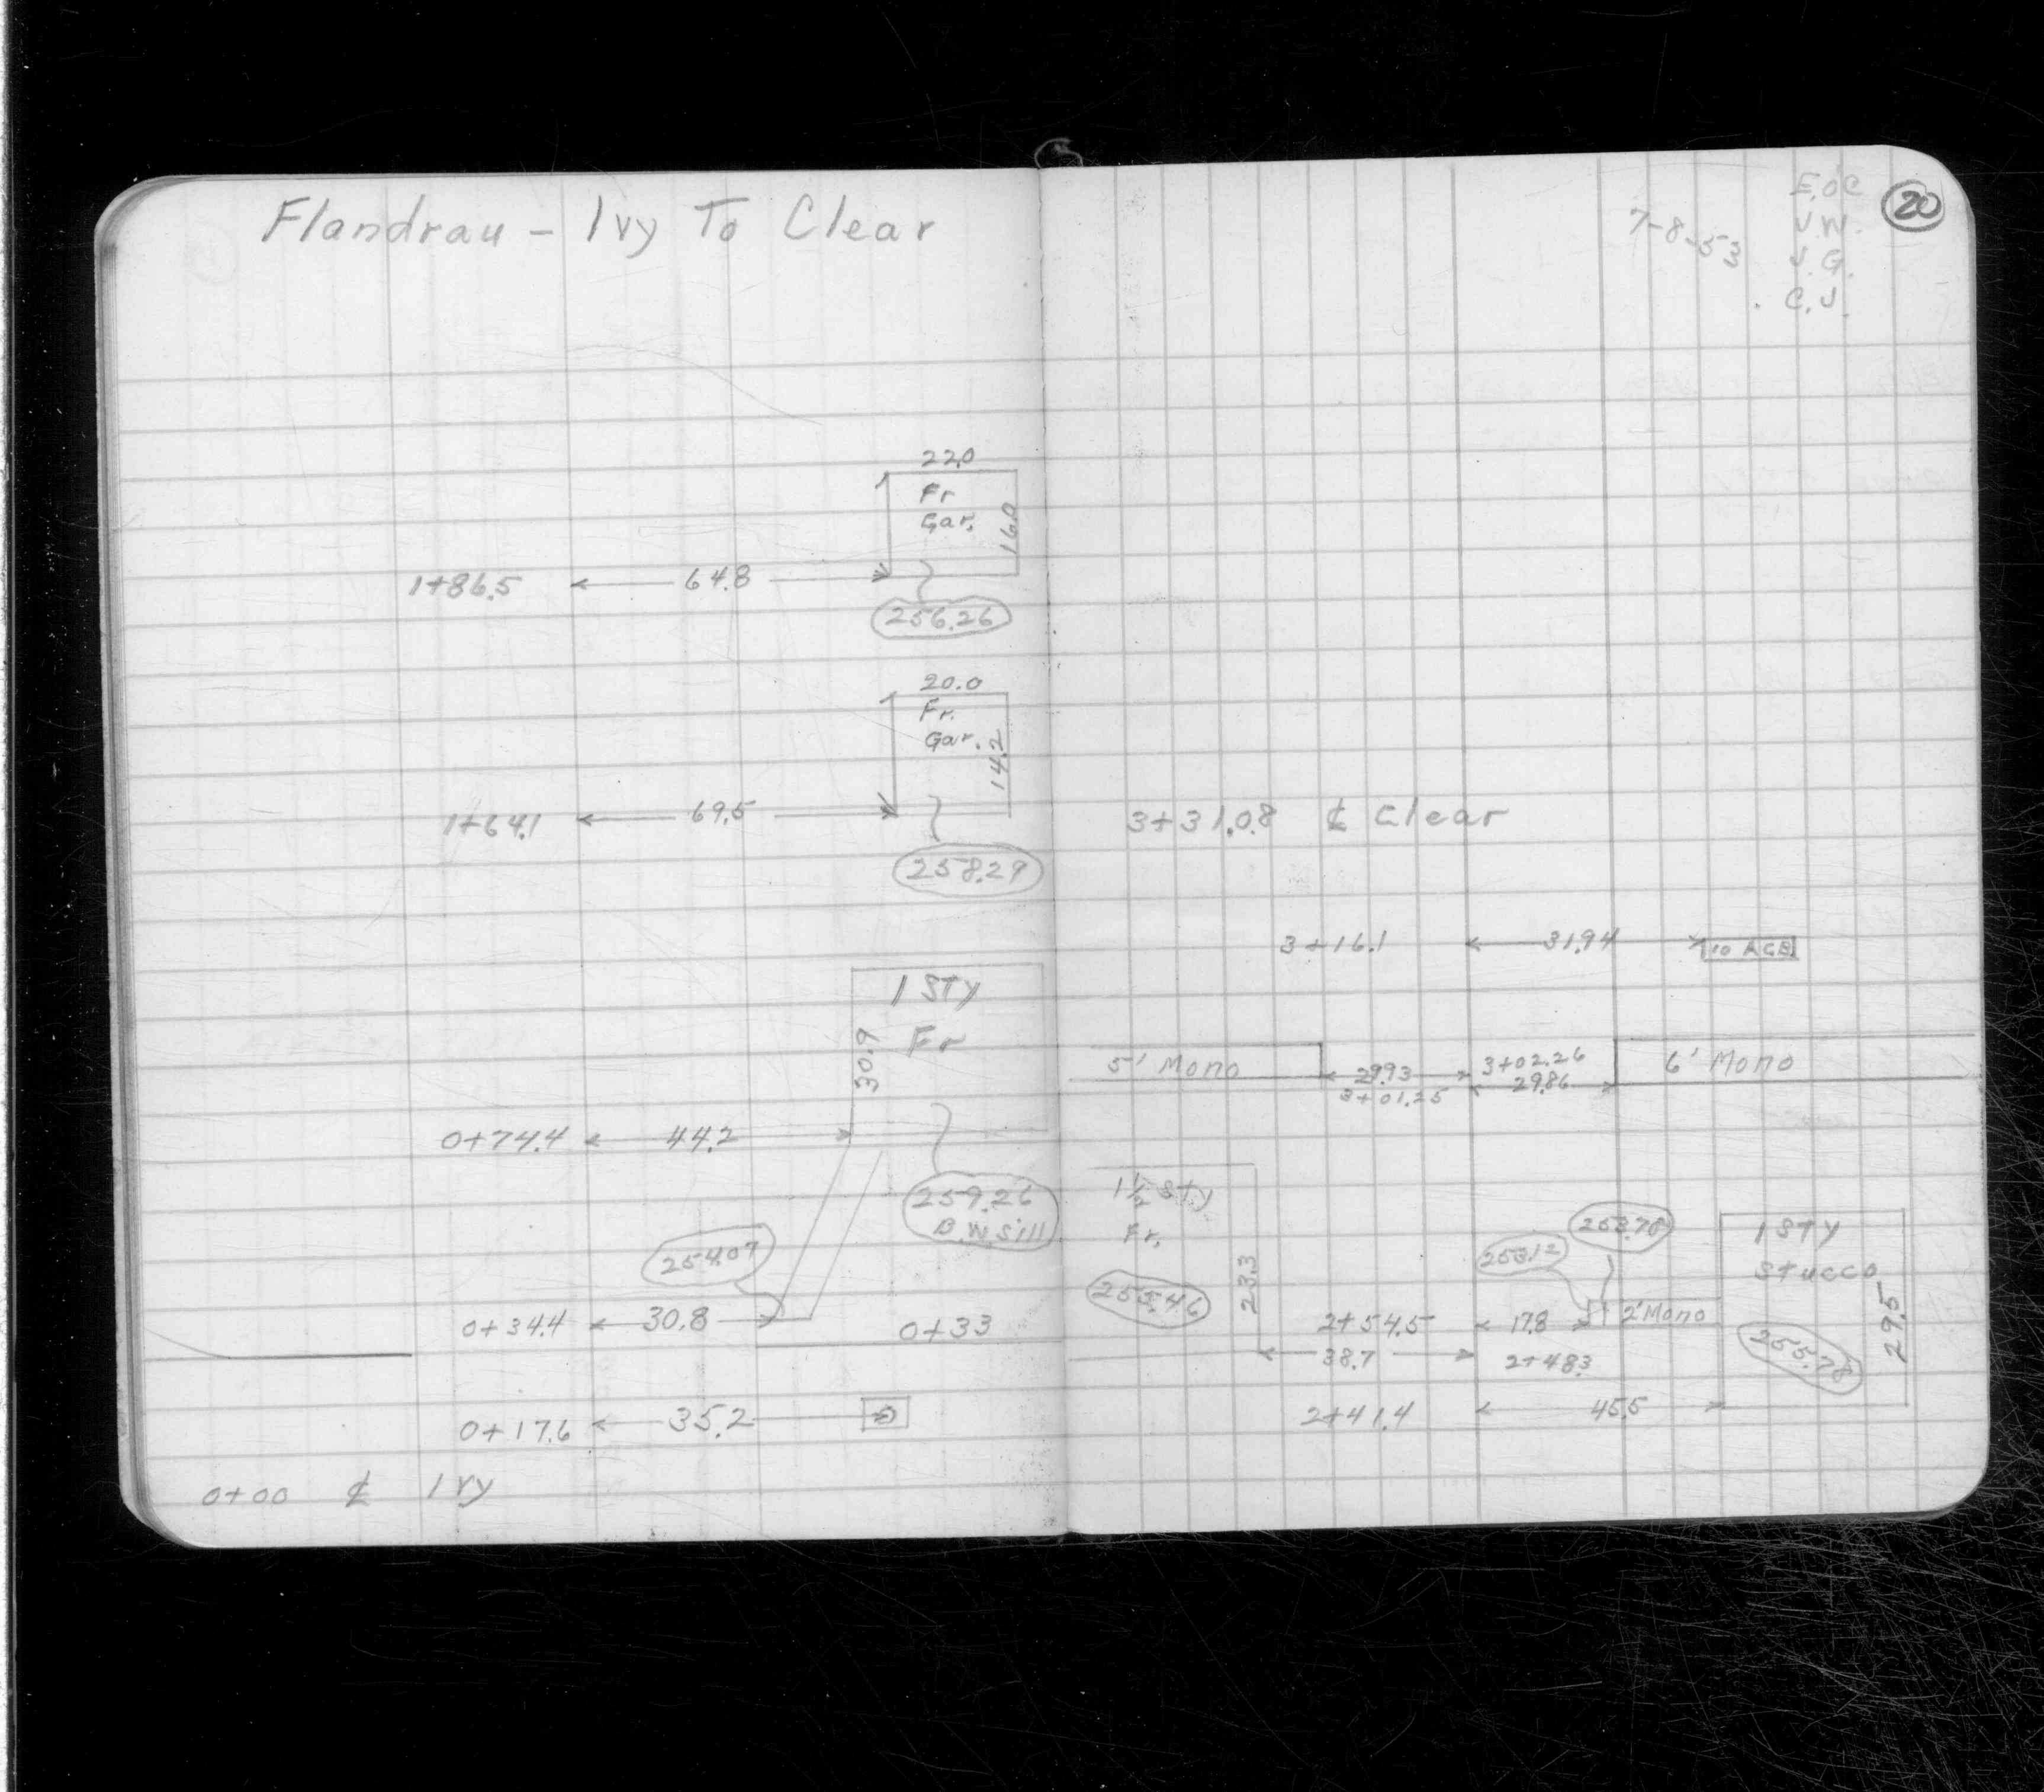 Flandrau - Ivy To Clear
22.0
Fr
Gar.
16.0
1+86.5 64.8
256.26
20.0
Fr.
Gar.
14.2
1+64.1 69.5
258.29
1 STY
Fr
30.9
0+74.4 44.2
259.26
B.W. Sill
254.07
0+34.4 30.8
0+33
0+17.6 35.2
0+00 ℄ Ivy
20
7-8-53
E.O.C
J.W.
J.G.
C.J.
3+31.08 ℄ Clear
3+16.1 31.94 10 ACB
5' Mono 29.93 3+02.26 6' Mono
3+01.25 29.86
1½ Sty
Fr.
255.46
23.3
253.78
253.12
1 STY
Stucco
2+54.5 17.8 2' Mono
29.5
38.7 2+48.3
255.78
2+41.4 45.5